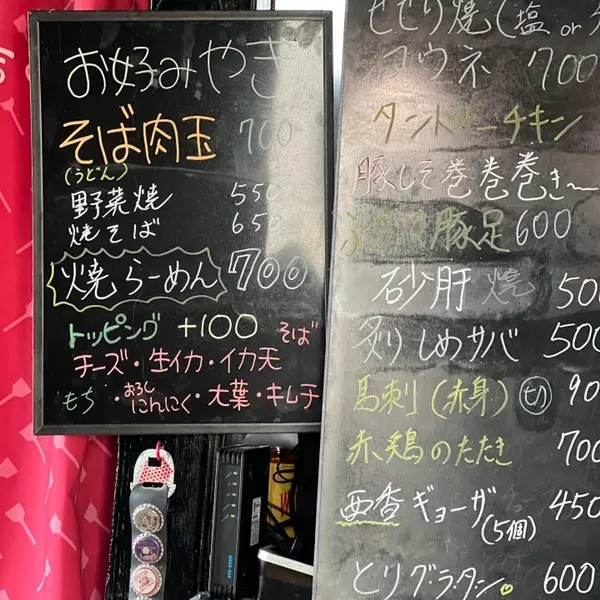 お好みやき
そば肉玉 700
(うどん)
野菜焼 550
焼そば 650
焼らーめん 700
トッピング +100 そば
チーズ・生イカ・イカ天
もち・おろしにんにく・大葉・キムチ
セセリ焼(塩 or
コウネ 700
タンドリーチキン
豚しそ巻巻巻き〜
豚足 600
砂肝 焼 500
炙りしめサバ 500
馬刺(赤身) 90
赤鶏のたたき 700
西香ギョーザ(5個) 450
とりグラタン 600